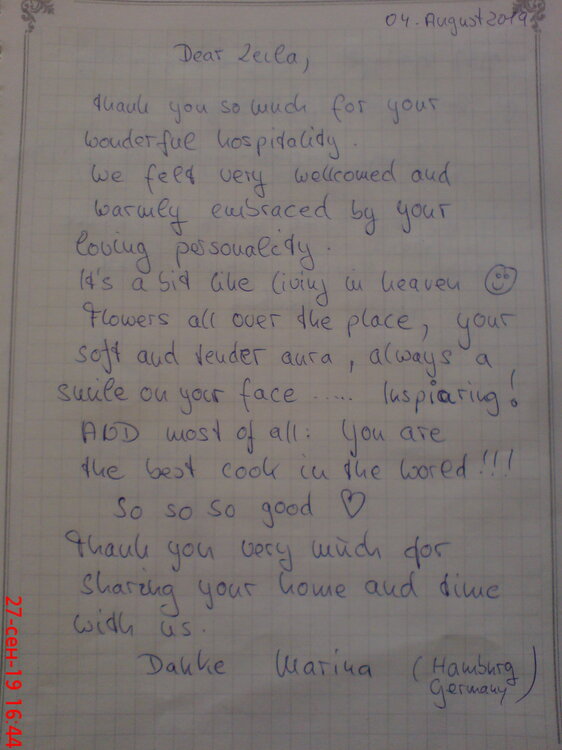 04. August 2019
Dear Zeila,
thank you so much for your
wonderful hospitality.
We felt very wellcomed and
warmly embraced by your
loving personality.
It's a bit like living in heaven
Flowers all over the place, your
soft and tender aura, always a
smile on your face ..... Inspiaring!
AND most of all: you are
the best cook in the world!!!
So so so good ♡
Thank you very much for
sharing your home and time
with us.
Danke Marina (Hamburg
Germany)
27-сен-19 16:44